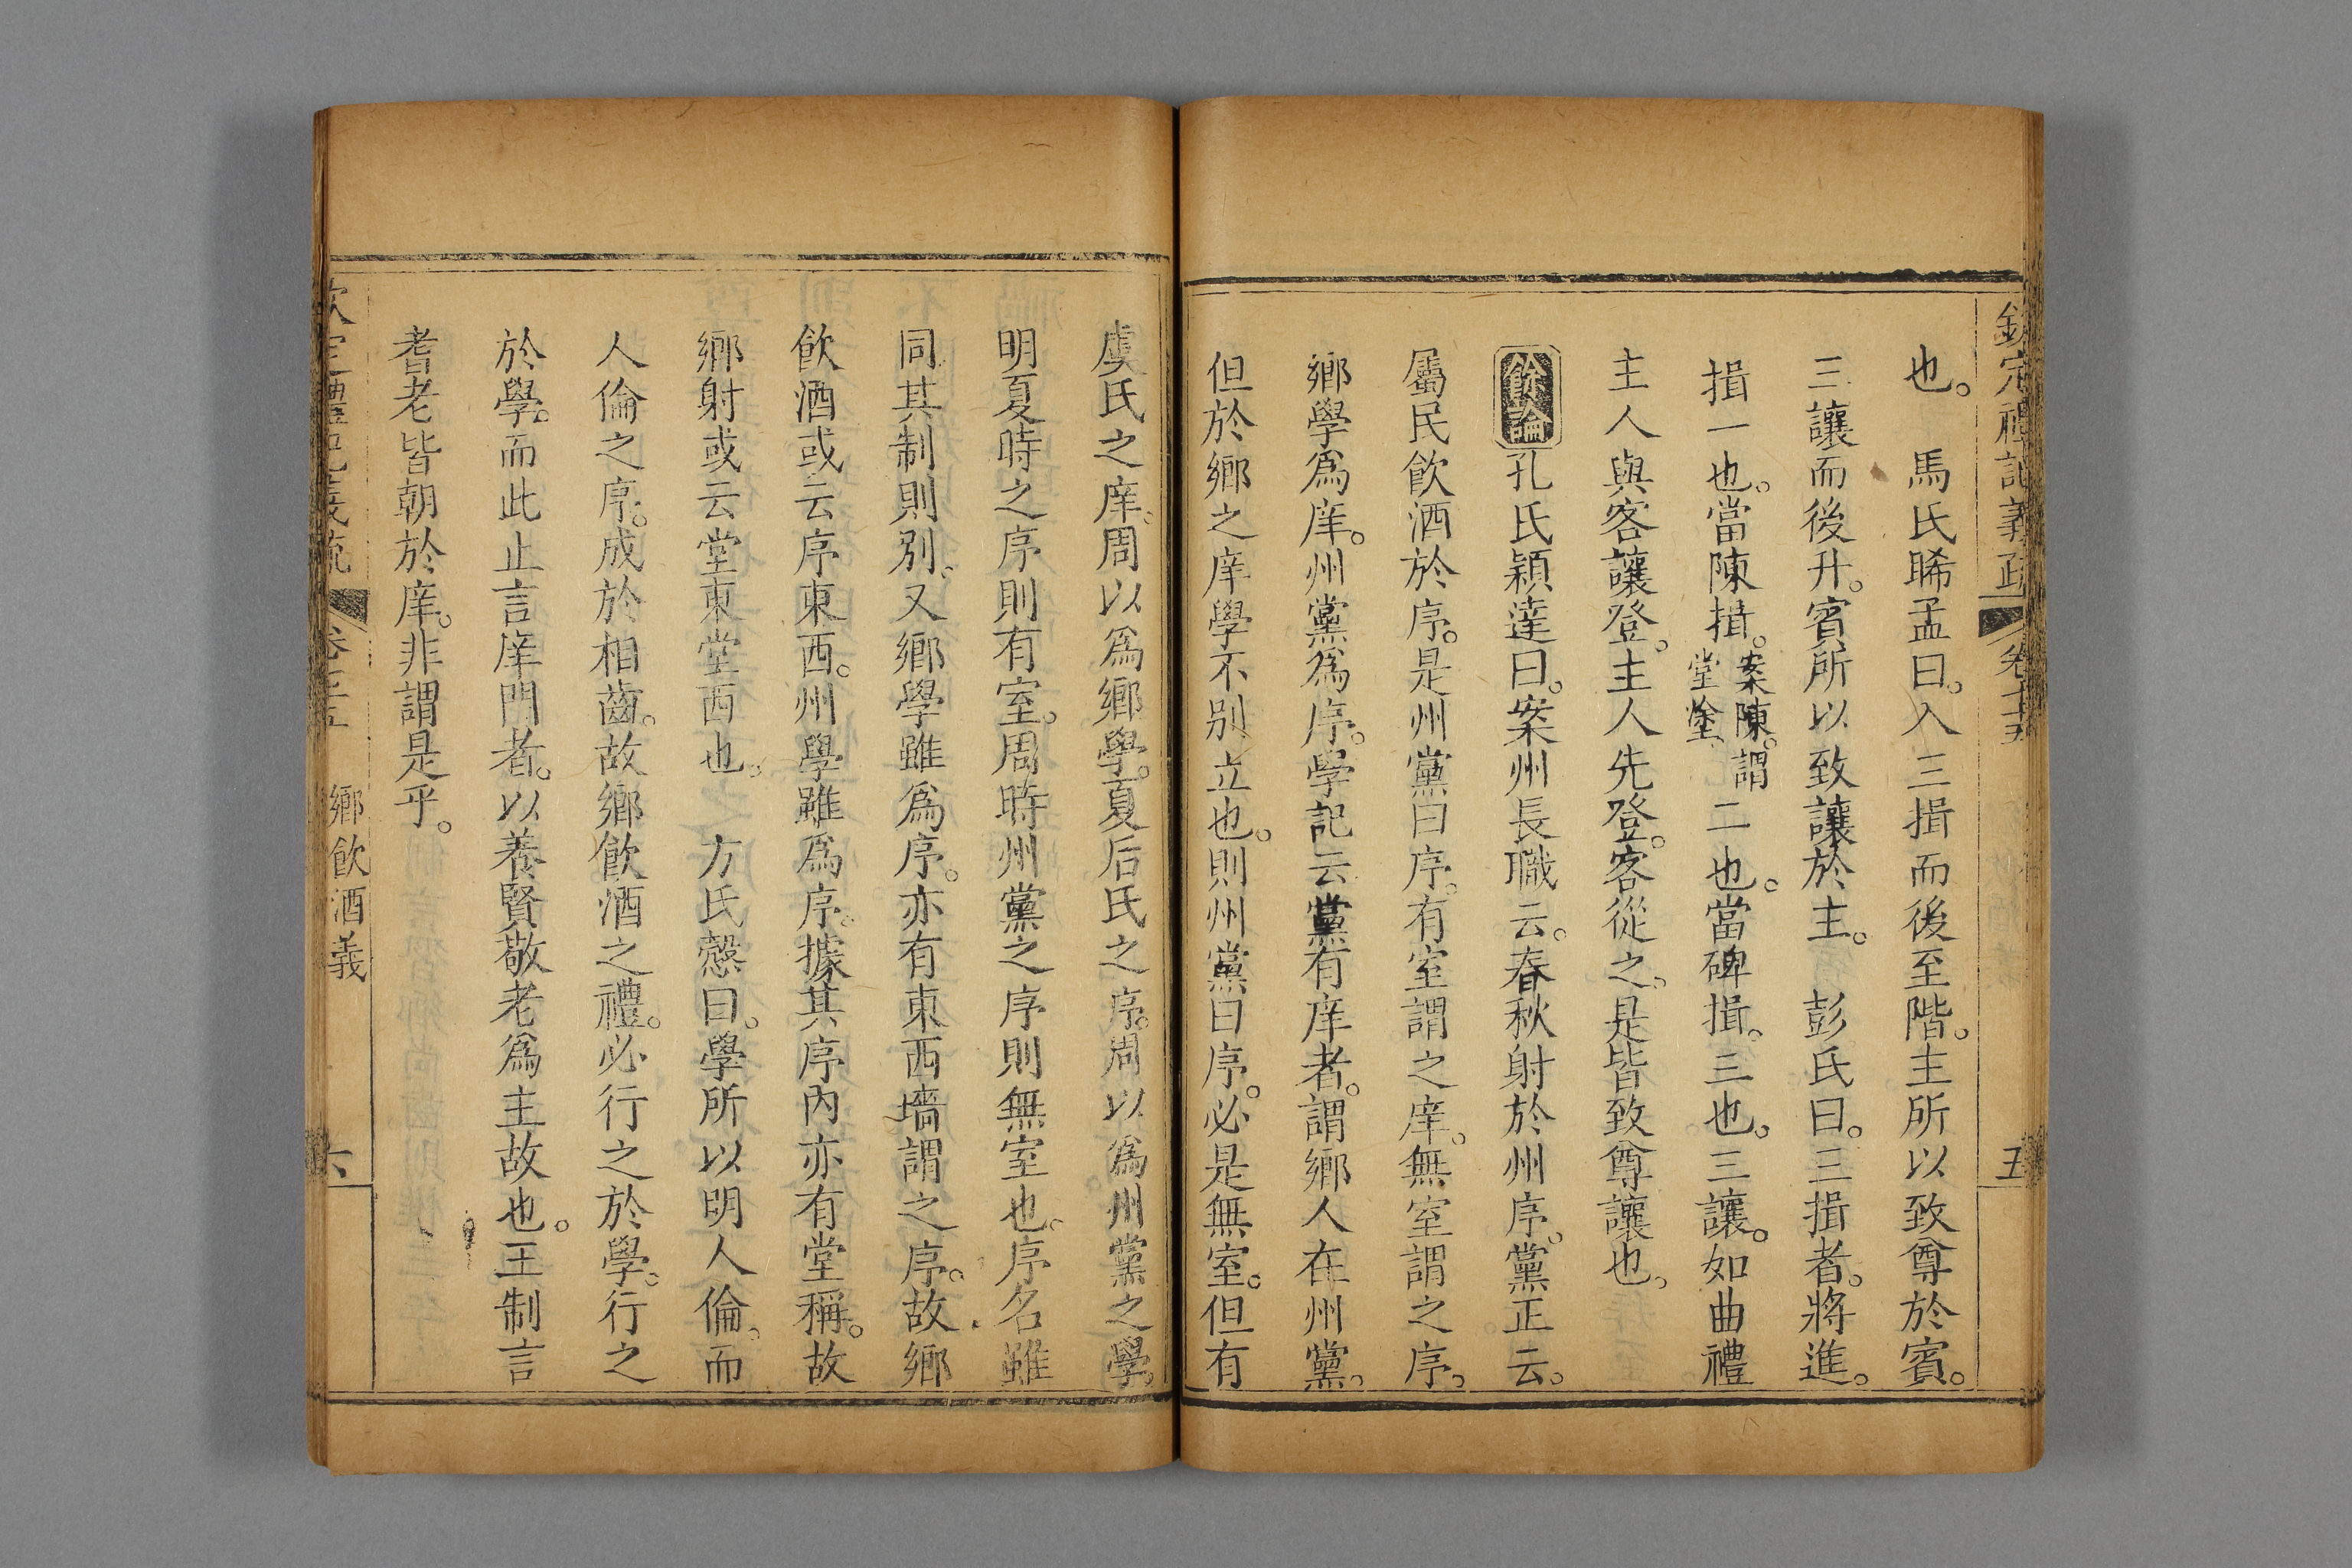 欽定禮記義疏 卷七十五 五
也。　馬氏晞孟曰。入三揖而後至階。主所以致尊於賓。
三讓而後升。賓所以致讓於主。　彭氏曰。三揖者。將進。
揖一也。當陳揖。案陳。謂堂塗。二也。當碑揖。三也。三讓。如曲禮
主人與客讓登。主人先登。客從之。是皆致尊讓也。
餘論孔氏穎達曰。案州長職云。春秋射於州序。黨正云。
屬民飲酒於序。是州黨曰序。有室謂之庠。無室謂之序。
鄉學爲庠。州黨爲序。學記云黨有庠者。謂鄉人在州黨。
但於鄉之庠學不別立也。則州黨曰序。必是無室。但有
虞氏之庠。周以爲鄉學。夏后氏之序。周以爲州黨之學。
明夏時之序則有室。周時州黨之序則無室也。序名雖
同。其制則別。又鄉學雖爲序。亦有東西墻謂之序。故鄉
飲酒或云序東西。州學雖爲序。據其序內亦有堂稱。故
鄉射或云堂東堂西也。　方氏慤曰。學所以明人倫。而
人倫之序。成於相齒。故鄉飲酒之禮。必行之於學。行之
於學。而此止言庠門者。以養賢敬老爲主故也。王制言
耆老皆朝於庠。非謂是乎。
欽定禮記義疏 鄉飲酒義 六